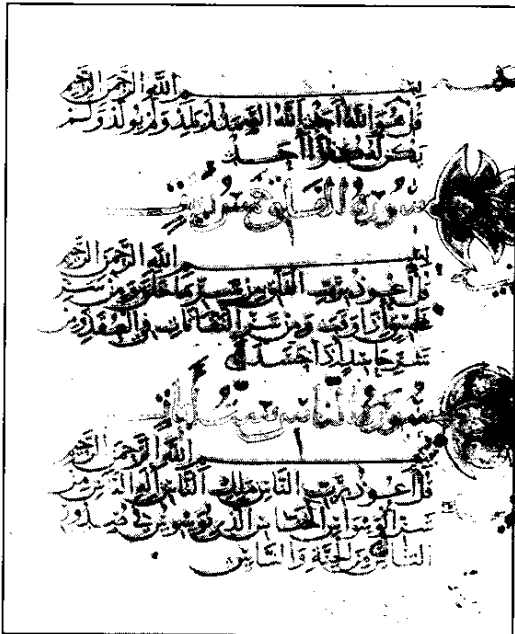 بسم الله الرحمن الرحيم
قل هو الله احد الله الصمد لم يلد ولم يولد ولم
يكن له كفوا احد
سورة الفلق
بسم الله الرحمن الرحيم
قل اعوذ برب الفلق من شر ما خلق ومن شر
غاسق اذا وقب ومن شر النفاثات في العقد ومن
شر حاسد اذا حسد
سورة الناس
بسم الله الرحمن الرحيم
قل اعوذ برب الناس ملك الناس اله الناس من
شر الوسواس الخناس الذي يوسوس في صدور
الناس من الجنة والناس